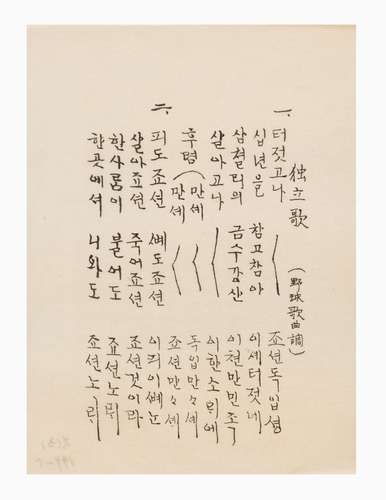 独立歌 (野球歌曲調)
一、터젓고나 〈 죠션독입셩
십년을 참고참아 이셰터젓네
삼쳘리의 금수강산 이쳔만민족
살아고나 〈 이한소리에
후렴(만셰 〈 독입만々셰
만셰 〈 죠션만々셰
二、피도죠션 뼈도죠션 이피이뼈는
살아죠션 죽어죠션 죠션것이라
한사룸이 불어도 죠션노래
한곳에셔 나와도 죠션노래